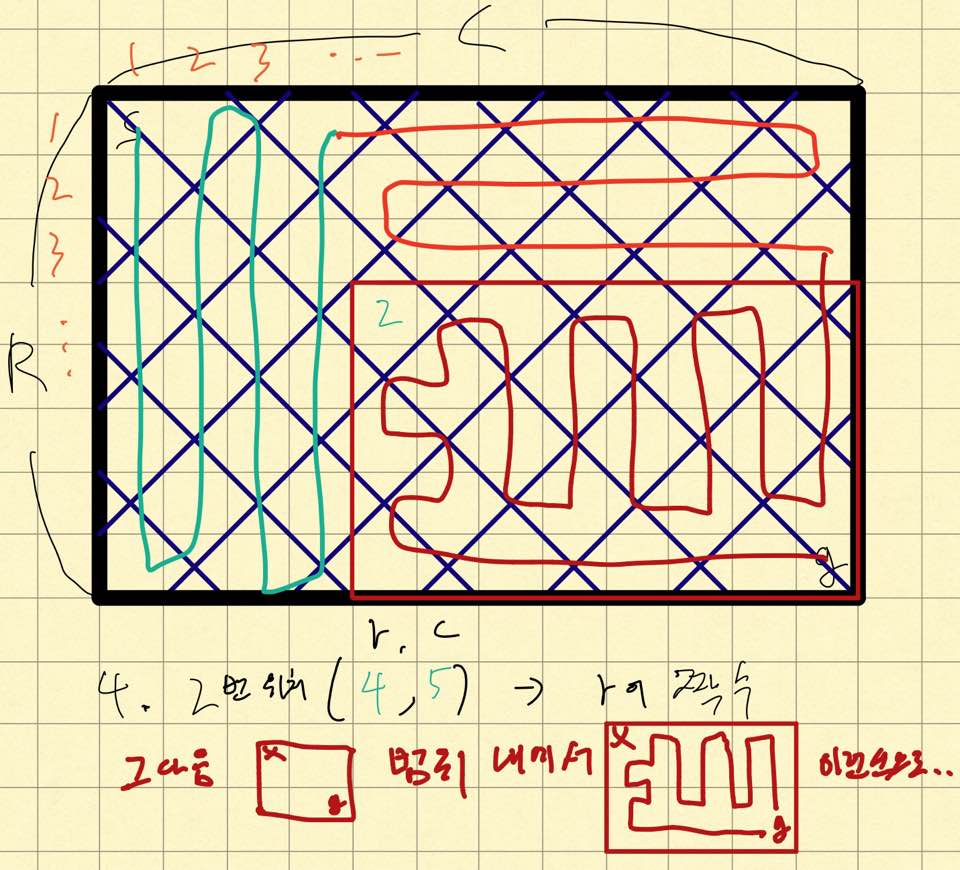 C
1 2 3 ...
1
2
3
:
R
S
2
g
r, c
4. 2번 위치 (4, 5) → r이 짝수
그다음 x g 범위 내에서 x g 이런식으로..